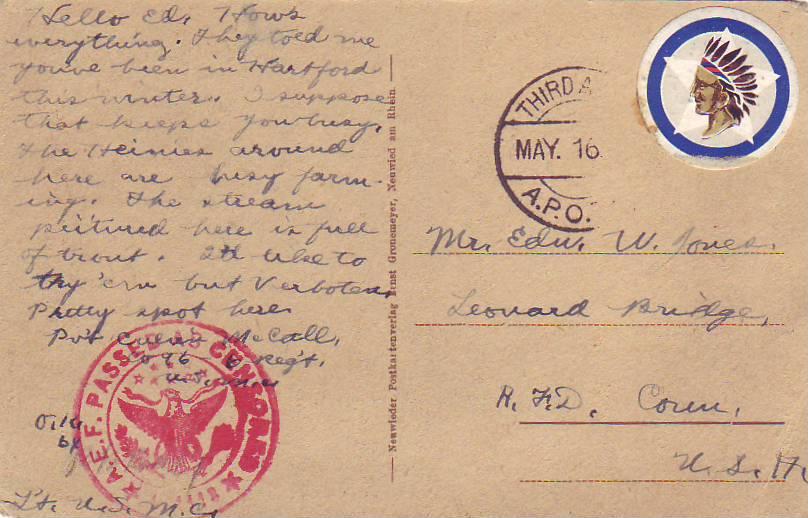 Hello Ed, How's
everything. They told me
you've been in Hartford
this winter. I suppose
that keeps you busy.
The Heinies around
here are busy farm-
ing. The stream
pictured here is full
of trout. I'd like to
try 'em but Verboten.
Pretty spot here
Pvt McCall,
96 Reg't.
O.K.
by
Lt. U.S.M.C.
A.E.F. PASSED AS CENSORED
Neuwieder Postkartenverlag Ernst Gronemeyer, Neuwied am Rhein
THIRD A
MAY. 16
A.P.O.
Mr. Edw. W. Jones.
Leonard Bridge,
R.F.D. Conn.
U.S.A.